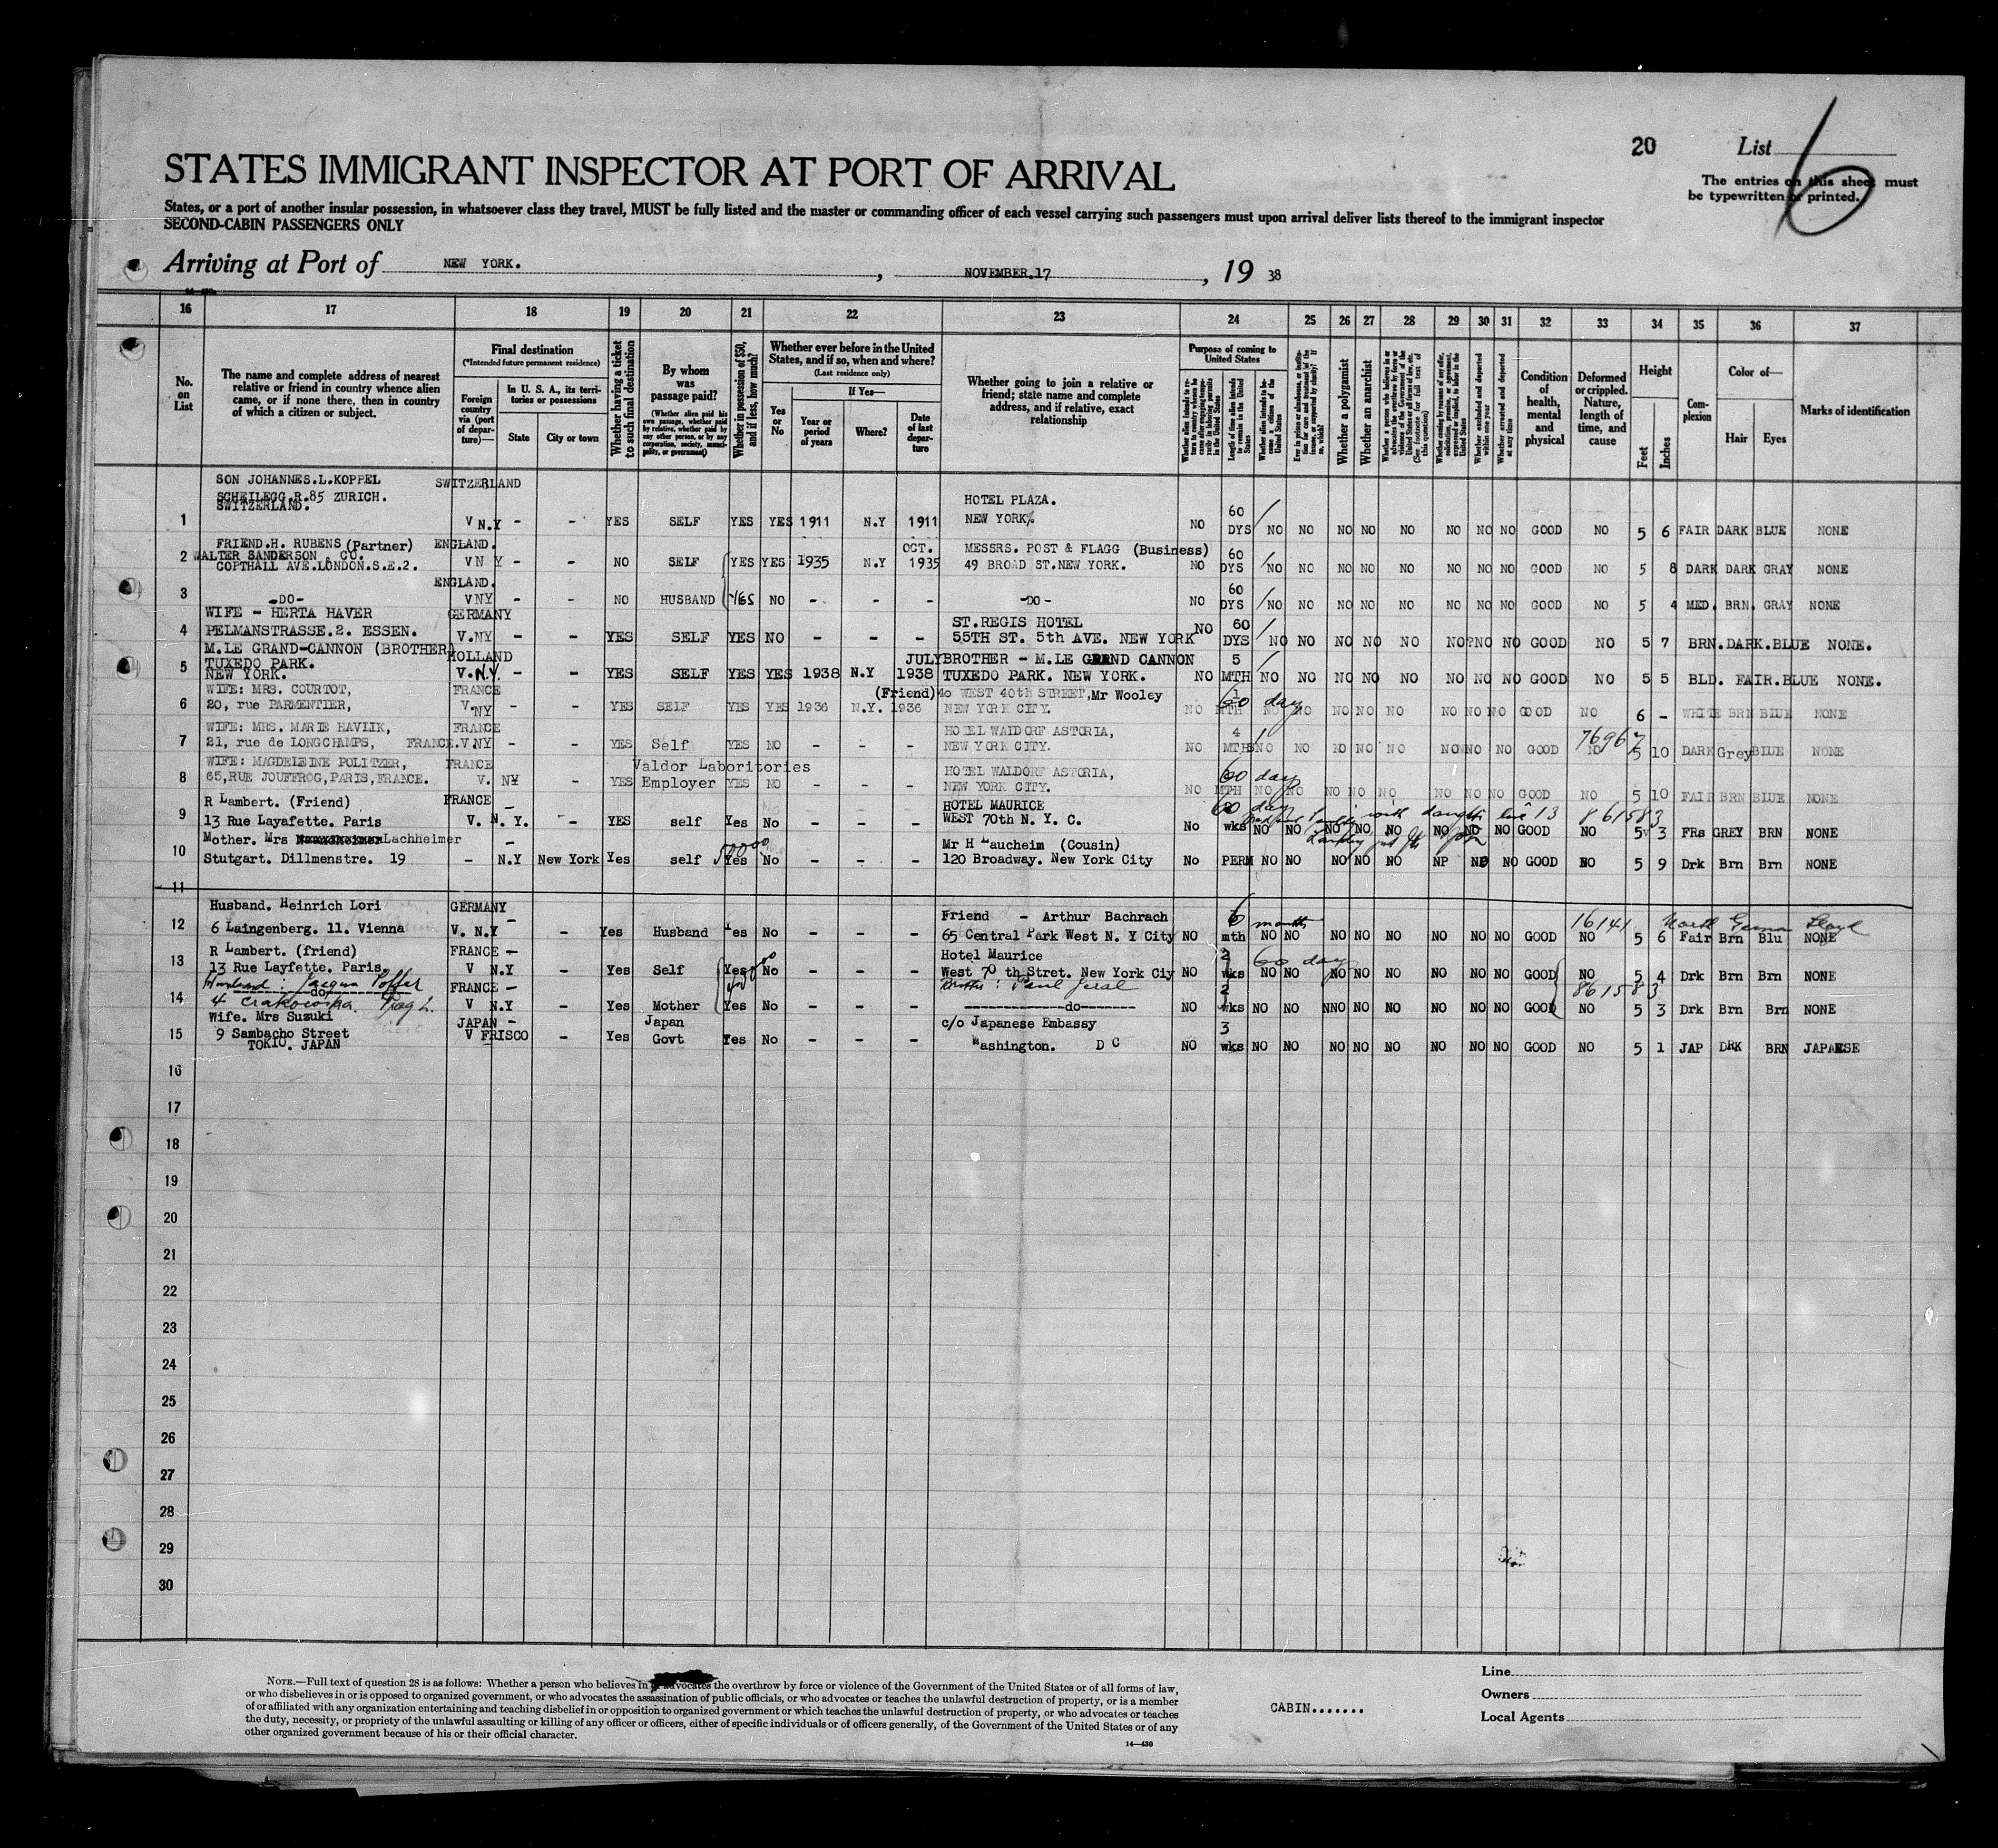 20
List
6
STATES IMMIGRANT INSPECTOR AT PORT OF ARRIVAL
The entries on this sheet must
be typewritten or printed.
States, or a port of another insular possession, in whatsoever class they travel, MUST be fully listed and the master or commanding officer of each vessel carrying such passengers must upon arrival deliver lists thereof to the immigrant inspector
SECOND-CABIN PASSENGERS ONLY
Arriving at Port of NEW YORK. , NOVEMBER.17 , 19 38
16 17 18 19 20 21 22 23 24 25 26 27 28 29 30 31 32 33 34 35 36 37
No. on List
The name and complete address of nearest relative or friend in country whence alien came, or if none there, then in country of which a citizen or subject.
Final destination
(*Intended future permanent residence)
Foreign country via (port of departure)—
In U. S. A., its territories or possessions
State
City or town
Whether having a ticket to such final destination
By whom was passage paid?
(Whether alien paid his own passage, whether paid by relative, whether paid by any other person, or by any corporation, society, municipality, or government)
Whether in possession of $50, and if less, how much?
Whether ever before in the United States, and if so, when and where?
(Last residence only)
Yes or No
If Yes—
Year or period of years
Where?
Date of last departure
Whether going to join a relative or friend; state name and complete address, and if relative, exact relationship
Purpose of coming to United States
Length of time alien intends to remain in the United States
Whether alien intends to become a citizen of the United States
Whether a polygamist
Whether an anarchist
Whether excluded and deported within one year
Whether arrested and deported at any time
Condition of health, mental and physical
Deformed or crippled. Nature, length of time, and cause
Height
Feet
Inches
Complexion
Color of—
Hair
Eyes
Marks of identification
SON JOHANNES.L.KOPPEL SWITZERLAND
SCHEILEGG.R.85 ZURICH. HOTEL PLAZA.
SWITZERLAND. 60
1 V N.Y - - YES SELF YES YES 1911 N.Y 1911 NEW YORK. NO DYS NO NO NO NO NO NO NO NO GOOD NO 5 6 FAIR DARK BLUE NONE
FRIEND.H. RUBENS (Partner) ENGLAND. OCT. MESSRS. POST & FLAGG (Business) 60
2 WALTER SANDERSON & CO.
COPTHALL AVE.LONDON.S.E.2. V N Y - - NO SELF YES YES 1935 N.Y 1935 49 BROAD ST.NEW YORK. NO DYS NO NO NO NO NO NO NO NO GOOD NO 5 8 DARK DARK GRAY NONE
ENGLAND. 60
3 -DO- V NY - - NO HUSBAND YES NO - - - -DO- NO DYS NO NO NO NO NO NO NO NO GOOD NO 5 4 MED. BRN. GRAY NONE
WIFE - HERTA HAVER GERMANY ST.REGIS HOTEL 60
4 PELMANSTRASSE.2. ESSEN. V.NY - - YES SELF YES NO - - - 55TH ST. 5th AVE. NEW YORK NO DYS NO NO NO NO NO NO NO NO GOOD NO 5 7 BRN.DARK.BLUE NONE.
M.LE GRAND-CANNON (BROTHER) HOLLAND JULY BROTHER - M.LE GRAND CANNON 5
5 TUXEDO PARK.
NEW YORK. V.N.Y. - - YES SELF YES YES 1938 N.Y 1938 TUXEDO PARK. NEW YORK. NO MTH NO NO NO NO NO NO NO NO GOOD NO 5 5 BLD. FAIR.BLUE NONE.
WIFE: MRS. COURTOT, FRANCE (Friend) 40 WEST 40th STREET,Mr Wooley 1 60 day
6 20, rue PARMENTIER, V. NY - - YES SELF YES YES 1936 N.Y. 1936 NEW YORK CITY. NO MTH NO NO NO NO NO NO NO NO GOOD NO 6 - WHITE BRN BLUE NONE
WIFE: MRS. MARIE HAVLIK, FRANCE HOTEL WALDORF ASTORIA, 4 76967
7 21, rue de LONGCHAMPS, FRANCE.V.NY - - YES Self YES NO - - - NEW YORK CITY. NO MTHS NO NO NO NO NO NO NO NO GOOD NO 5 10 DARK Grey BLUE NONE
WIFE: MAGDELEINE POLITZER, FRANCE Valdor Laboritories HOTEL WALDORF ASTORIA, 60 day
8 65,RUE JOUFFROG,PARIS,FRANCE. V. NY - YES Employer YES NO - - - NEW YORK CITY. NO MTH NO NO NO NO NO NO NO NO GOOD NO 5 10 FAIR BRN BLUE NONE
R Lambert. (Friend) FRANCE - HOTEL MAURICE 60 day with daughter line 13 861583
9 13 Rue Layafette. Paris V. N. Y. - YES self Yes No - - - WEST 70th N. Y. C. No wks NO NO NO NO NO NO NO NO GOOD NO 5 3 FRs GREY BRN NONE
Mother. Mrs Lachheimer - 500.00 Mr H Laucheim (Cousin)
10 Stutgart. Dillmenstre. 19 - N.Y New York Yes self Yes No - - - 120 Broadway. New York City No PERM NO NO NO NO NO NP NO NO GOOD NO 5 9 Drk Brn Brn NONE
11
Husband. Heinrich Lori GERMANY - Friend - Arthur Bachrach 6 months 16141 North German Lloyd
12 6 Laingenberg. 11. Vienna V. N.Y - Yes Husband Yes No - - - 65 Central Park West N. Y City NO mth NO NO NO NO NO NO NO NO GOOD NO 5 6 Fair Brn Blu NONE
R Lambert. (friend) FRANCE - Hotel Maurice 2 60 day
13 13 Rue Layfette. Paris. V N.Y - Yes Self Yes No - - - West 70 th Stret. New York Ciy NO wks NO NO NO NO NO NO NO NO GOOD NO 5 4 Drk Brn Brn NONE
Husband: Jacques FRANCE - Paul 2 861583
14 do V N.Y - Yes Mother Yes No - - - do NO wks NO NO NNO NO NO NO NO NO GOOD NO 5 3 Drk Brn Brn NONE
Wife. Mrs Suzuki JAPAN - Japan c/o Japanese Embassy 3
15 9 Sambacho Street V FRISCO - Yes Govt Yes No - - - Washington. D C NO wks NO NO NO NO NO NO NO NO GOOD NO 5 1 JAP DRK BRN JAPAESE
TOKIO. JAPAN
16
17
18
19
20
21
22
23
24
25
26
27
28
29
30
NOTE.—Full text of question 28 is as follows: Whether a person who believes in or advocates the overthrow by force or violence of the Government of the United States or of all forms of law,
or who disbelieves in or is opposed to organized government, or who advocates the assassination of public officials, or who advocates or teaches the unlawful destruction of property, or is a member
of or affiliated with any organization entertaining and teaching disbelief in or opposition to organized government or which teaches the unlawful destruction of property, or who advocates or teaches
the duty, necessity, or propriety of the unlawful assaulting or killing of any officer or officers, either of specific individuals or of officers generally, of the Government of the United States or of any
other organized government because of his or their official character.
14—430
CABIN.......
Line
Owners
Local Agents